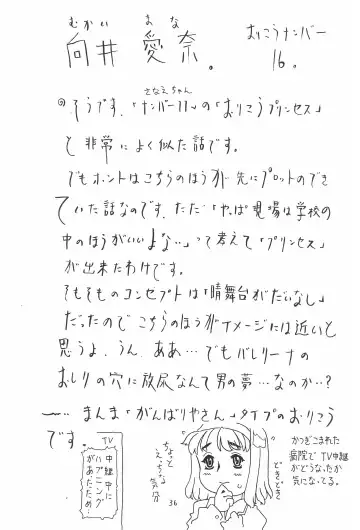 むかい まな
向井 愛奈。
おりこうナンバー
16。
◎そうです、「ナンバー11」の「おりこうプリンセス」
さなえちゃん
と非常によく似た話です。
でもホントはこちらのほうが先にプロットのでき
ていた話なのです、ただ「やっぱ現場は学校の
中のほうがいいよな…」って考えて「プリンセス」
が出来たわけです。
そもそものコンセプトは「晴舞台がだいなし」
だったので こちらのほうがイメージには近いと
思うよ、うん、ああ…でもバレリーナの
おしりの穴に放尿なんて男の夢…なのか…?
まんま「がんばりやさん」タイプのおりこう
です。
TV
中継中に
ハプニング
があったため…
ちょっと
えっちな
気分
どきどき
かつぎこまれた
病院でTV中継
がどうなったか
気になってる。
36